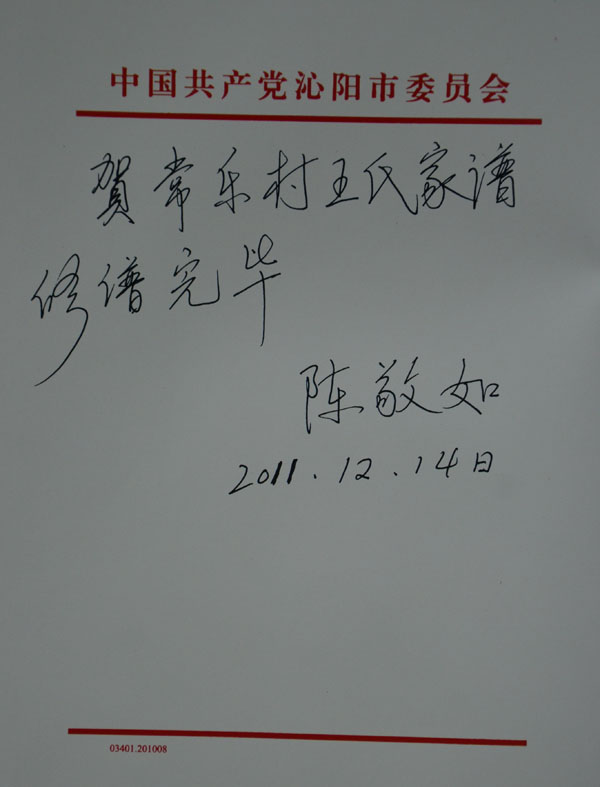 中国共产党沁阳市委员会
贺常乐村王氏家谱
修谱完毕
陈敬如
2011.12.14日
03401.201008